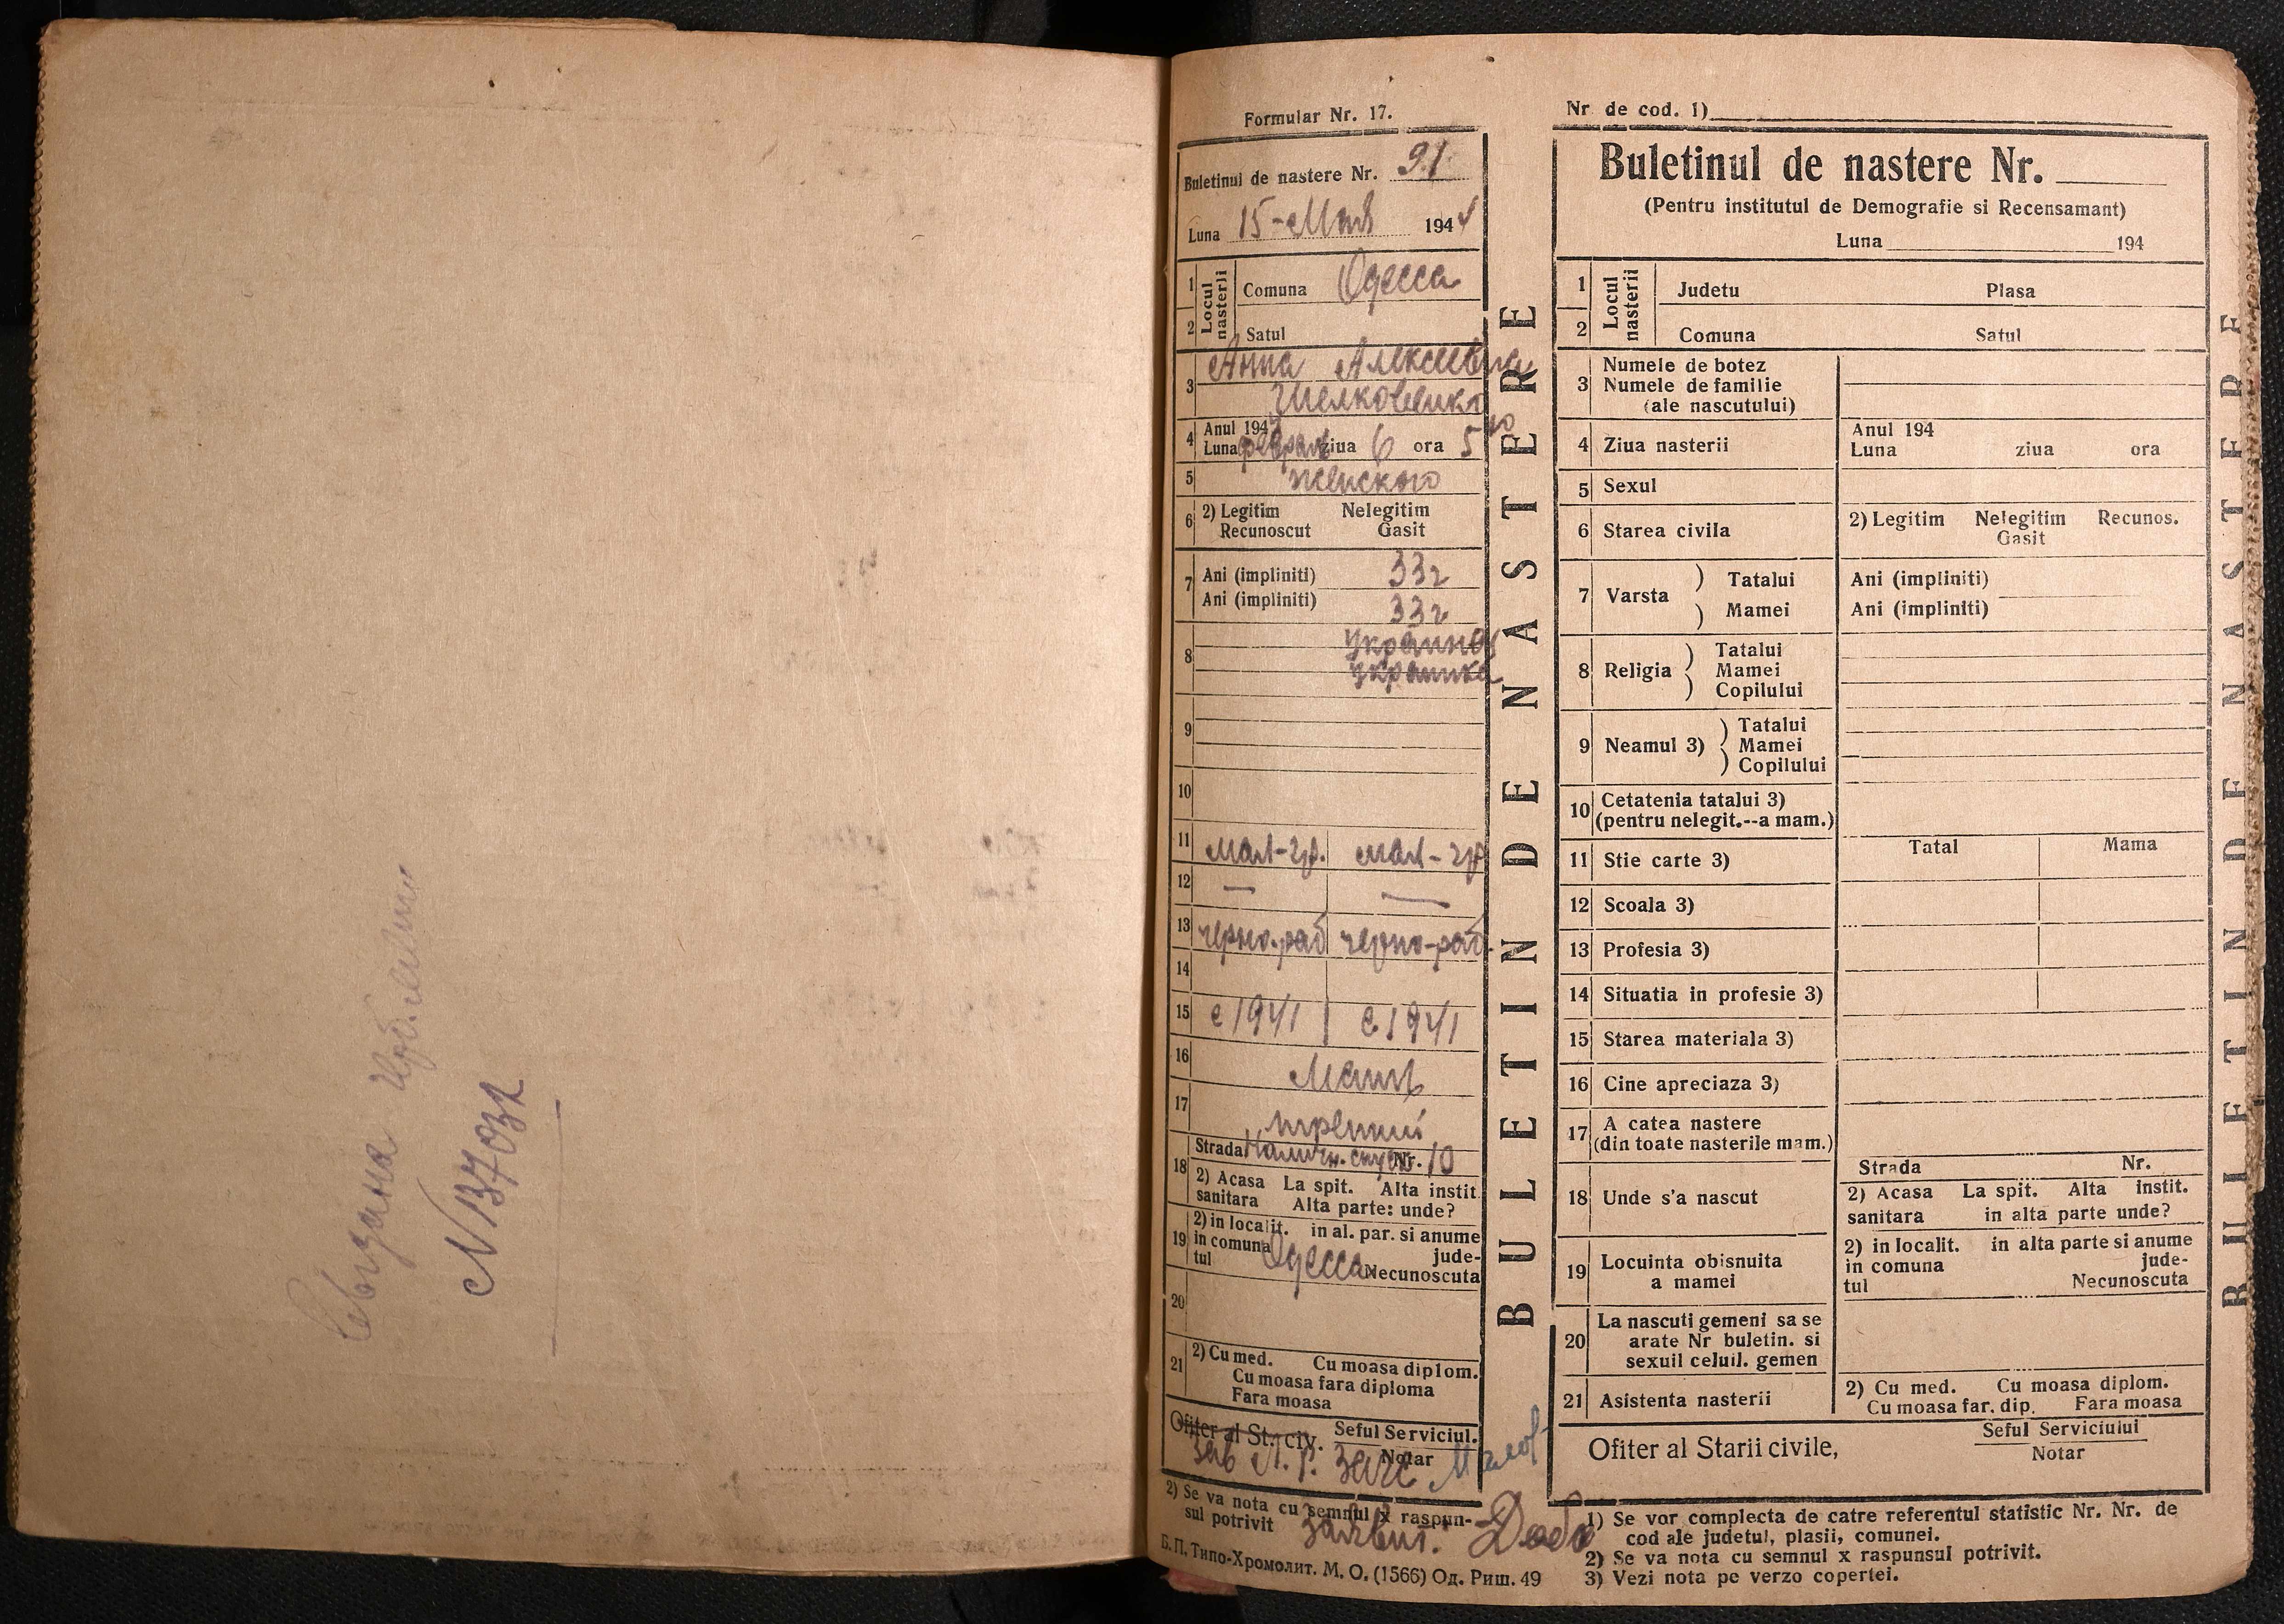 № 137032
Formular Nr. 17.
Buletinul de nastere Nr. 91
Luna 15-Мая 1944
1 2 Locul nasterii
Comuna Одесса
Satul
3 Анна Алексеевна
4 Anul 194
Luna февраля ziua 6 ora 5
5 женского
6 2) Legitim Nelegitim
Recunoscut Gasit
7 Ani (impliniti) 33г
Ani (impliniti) 33г
8 Украинец
Украинка
9
10
11 мал-гр. мал-гр
12 — —
13 черно-раб черно-раб.
14
15 с 1941 с 1941
16 Мать
17 третий
18 Strada Nr. 10
2) Acasa La spit. Alta instit
sanitara Alta parte: unde?
19 2) in localit. in al. par. si anume
in comuna Одесса jude-
tul Necunoscuta
20
21 2) Cu med. Cu moasa diplom.
Cu moasa fara diploma
Fara moasa
Ofiter al St. civ. Seful Serviciul.
Notar
Зав
2) Se va nota cu semnul x raspun-
sul potrivit
Заявит.
Б.П. Типо-Хромолит. М. О. (1566) Од. Риш. 49
BULETIN DE NASTERE
Nr de cod. 1)
Buletinul de nastere Nr.
(Pentru institutul de Demografie si Recensamant)
Luna 194
1 2 Locul nasterii
Judetu Plasa
Comuna Satul
3 Numele de botez
Numele de familie
(ale nascutului)
4 Ziua nasterii Anul 194
Luna ziua ora
5 Sexul
6 Starea civila 2) Legitim Nelegitim Recunos.
Gasit
7 Varsta ) Tatalui Ani (impliniti)
) Mamei Ani (impliniti)
8 Religia ) Tatalui
Mamei
) Copilului
9 Neamul 3) ) Tatalui
Mamei
) Copilului
10 Cetatenia tatalui 3)
(pentru nelegit.--a mam.)
11 Stie carte 3) Tatal Mama
12 Scoala 3)
13 Profesia 3)
14 Situatia in profesie 3)
15 Starea materiala 3)
16 Cine apreciaza 3)
17 A catea nastere
(din toate nasterile mam.)
18 Unde s'a nascut Strada Nr.
2) Acasa La spit. Alta instit.
sanitara in alta parte unde?
19 Locuinta obisnuita
a mamei
2) in localit. in alta parte si anume
in comuna jude-
tul Necunoscuta
20 La nascuti gemeni sa se
arate Nr buletin. si
sexuil celuil. gemen
21 Asistenta nasterii 2) Cu med. Cu moasa diplom.
Cu moasa far. dip. Fara moasa
Ofiter al Starii civile, Seful Serviciului
Notar
1) Se vor complecta de catre referentul statistic Nr. Nr. de
cod ale judetul, plasii, comunei.
2) Se va nota cu semnul x raspunsul potrivit.
3) Vezi nota pe verzo copertei.
BULETIN DE NASTERE